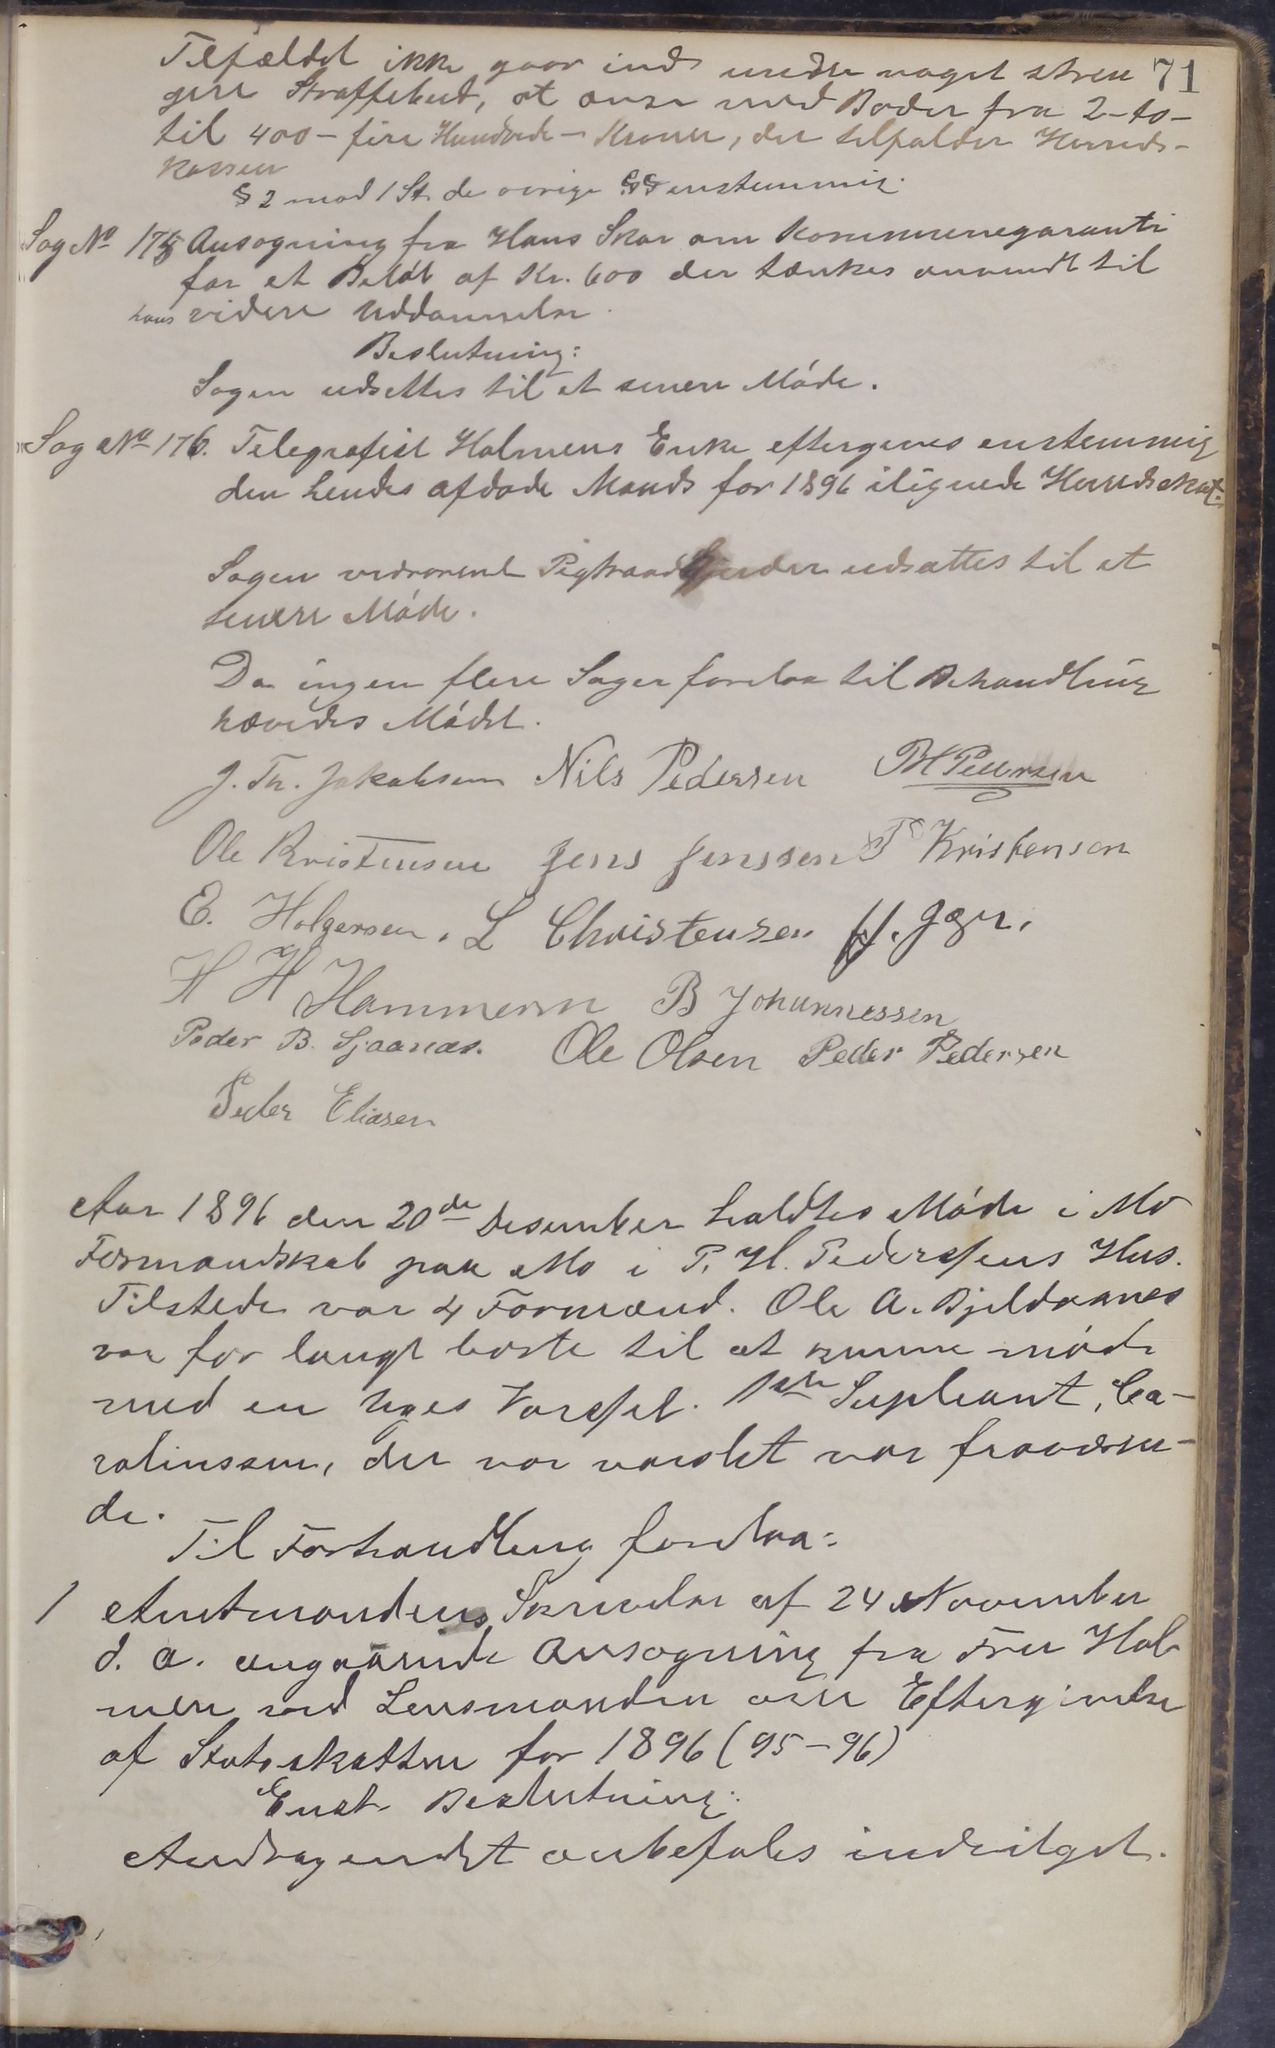 71
Tilfældet ikke gaar ind under noget stren
gere Straffebud, at anse med Bøder fra 2 - to -
til 400 - fire Hundrede - Kroner, der tilfalder Herreds-
kassen
§ 2 mod 1 St. de øvrige §§ enstemmig.
Sag No 175 Ansøgning fra Hans Skar om Kommunegaranti
for et Beløb af Kr. 600 der tænkes anvendt til
hans videre Uddannelse.
Beslutning:
Sagen udsettes til et senere Møde.
Sag No 176. Telegrafist Holmens Enke eftergives enstemmig
den hendes afdøde Mand for 1896 ilignede Herredsskat.
Sagen vedrørende Pigtraadgjerder udsættes til et
senere Møde.
Da ingen flere Sager forelaa til Behandling
hævedes Mødet.
J. Th. Jakobsen Nils Pedersen PH Pedersen
Ole Kristensen Jens Jenssen P Kristensen
E. Holgersen. L Christensen
H H Hammeren B Johannessen
Peder B. Sjaanæs. Ole Olsen Peder Pedersen
Peder Eliasen
Aar 1896 den 20de Desember holdtes Møde i Mo
Formandskab paa Mo i P. H. Pedersens Hus.
Tilstede var 4 Formænd. Ole A. Bjeldaanes
var for langt borte til at kunne møde
med en uges Varsel. 1ste Supleant, Ca-
rolinssen, der var varslet var fraværen-
de.
Til Forhandling forelaa:
1 Amtmandens Skrivelse af 24 November
d. A. angaaende Ansøgning fra Fru Hol
men ved Lensmanden om Eftergivelse
af Statsskatten for 1896 (95-96)
Enst. Beslutning:
Andragendet anbefales indvilget.